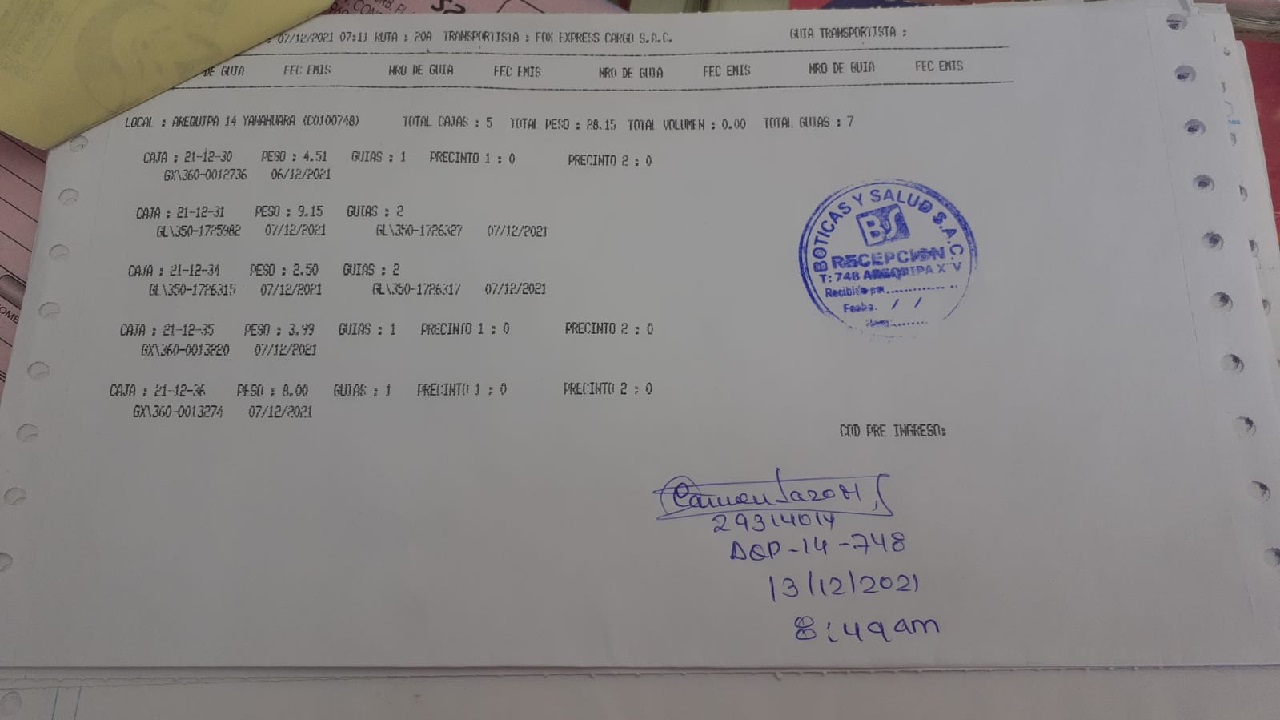 07/12/2021 07:13 RUTA : 20A TRANSPORTISTA : FOX EXPRESS CARGO S.A.C. GUIA TRANSPORTISTA :
DE GUIA FEC EMIS NRO DE GUIA FEC EMIS NRO DE GUIA FEC EMIS NRO DE GUIA FEC EMIS
LOCAL : AREQUIPA 14 YANAHUARA (C0100748) TOTAL CAJAS : 5 TOTAL PESO : 28.15 TOTAL VOLUMEN : 0.00 TOTAL GUIAS : 7
CAJA : 21-12-30 PESO : 4.51 GUIAS : 1 PRECINTO 1 : 0 PRECINTO 2 : 0
GX\360-0012736 06/12/2021
CAJA : 21-12-31 PESO : 9.15 GUIAS : 2
GL\350-1725982 07/12/2021 GL\350-1726327 07/12/2021
CAJA : 21-12-34 PESO : 2.50 GUIAS : 2
GL\350-1726315 07/12/2021 GL\350-1726317 07/12/2021
CAJA : 21-12-35 PESO : 3.99 GUIAS : 1 PRECINTO 1 : 0 PRECINTO 2 : 0
GX\360-0013220 07/12/2021
CAJA : 21-12-36 PESO : 8.00 GUIAS : 1 PRECINTO 1 : 0 PRECINTO 2 : 0
GX\360-0013274 07/12/2021
BOTICAS Y SALUD S.A.C.
BS
RECEPCIÓN
T: 748 AREQUIPA XIV
Recibido por
Fecha. / /
COD PRE INGRESO:
29314014
AQP-14-748
13/12/2021
8:49am